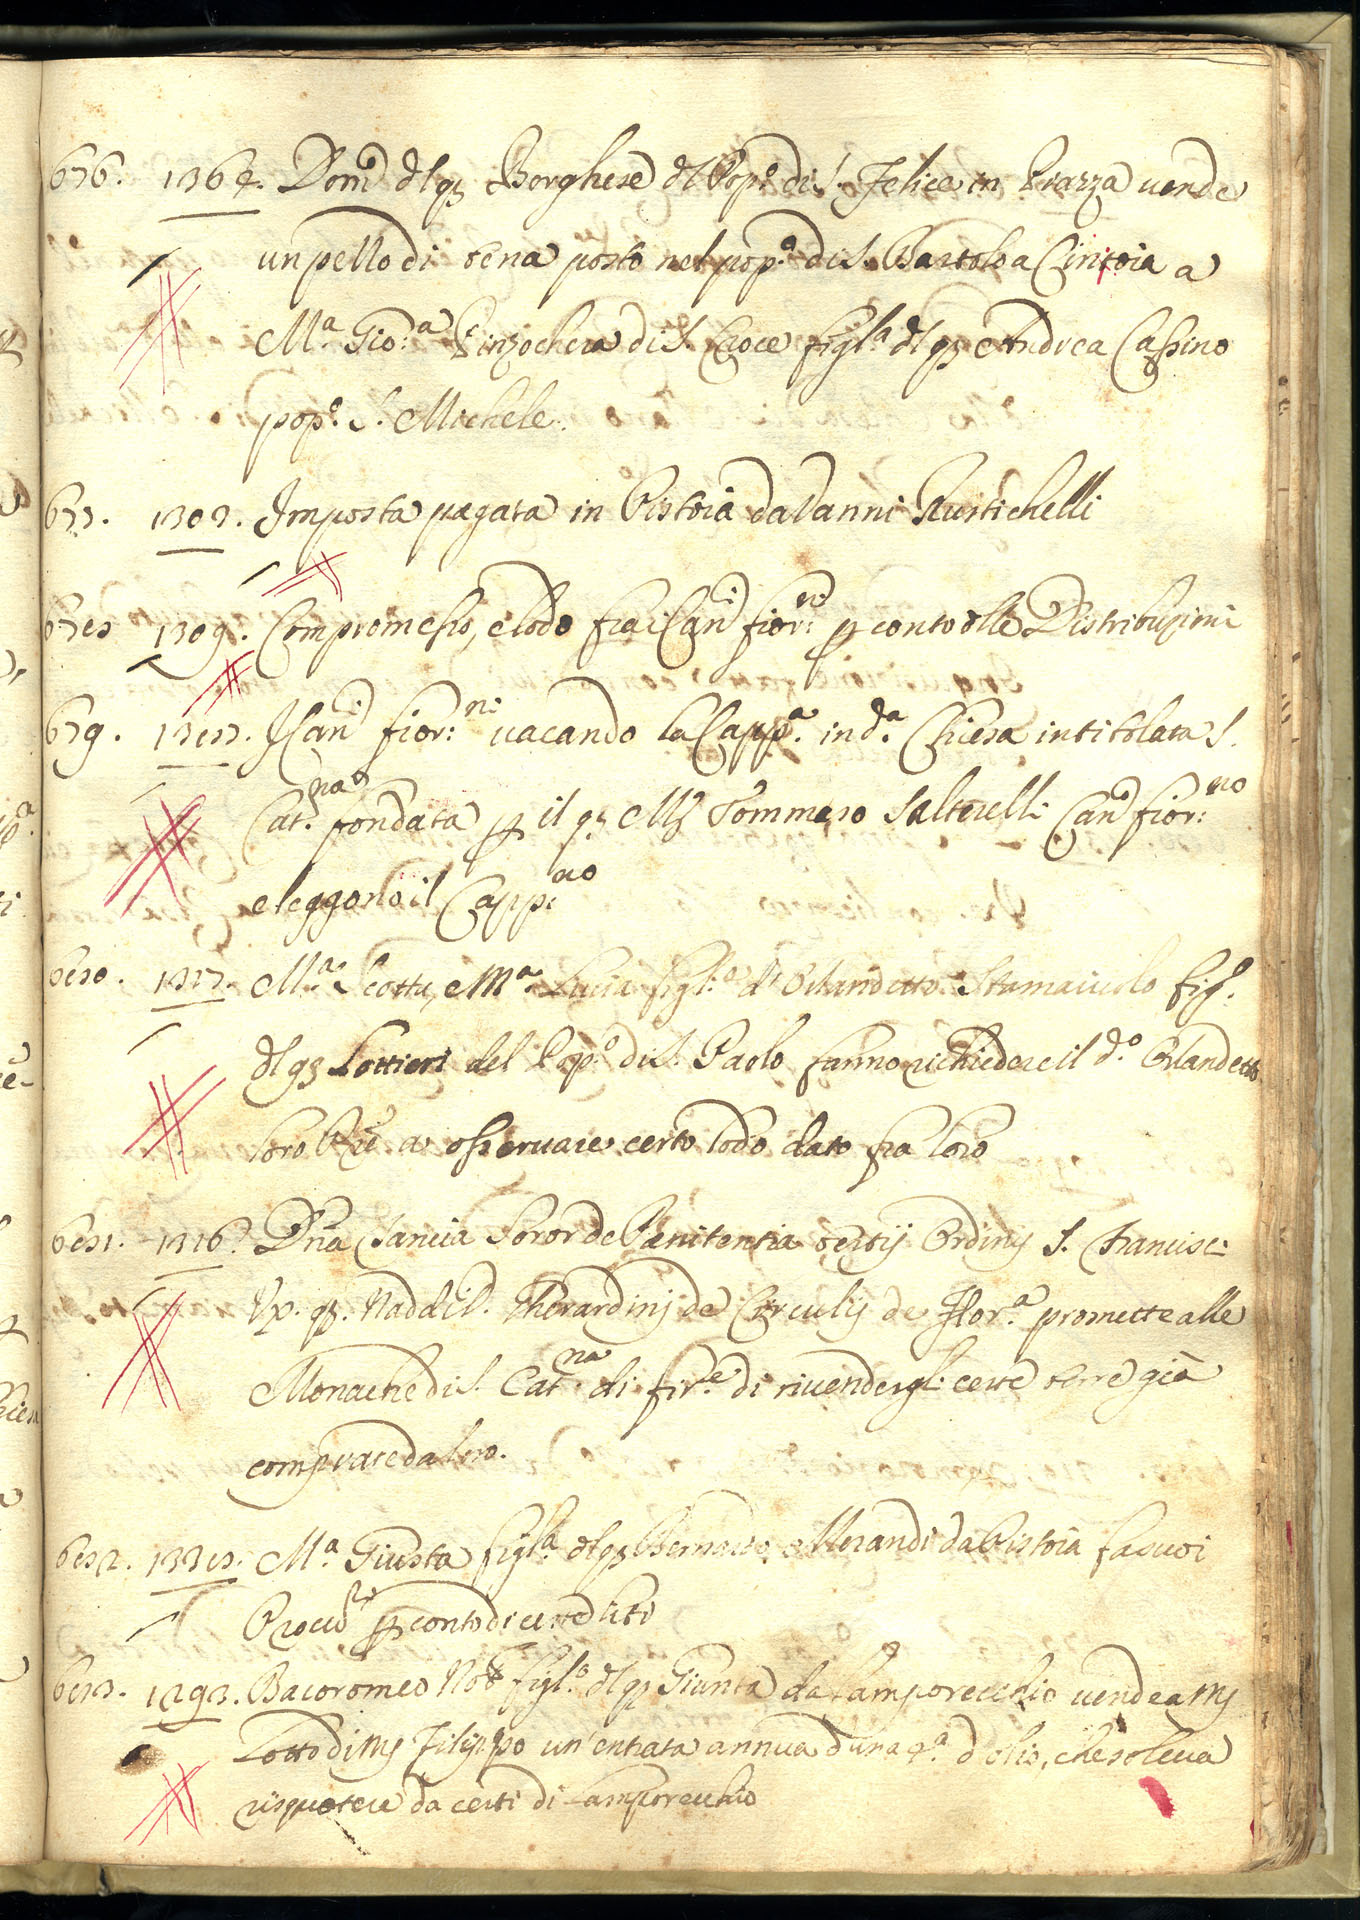 676. 1364. Dom.º dl q3 Borghese dl Pop.º di S. Felice in Piazza vende
un pello di tena posto nel pop.º di S. Bartolo a Cintoia a
M.ª Gio.ª Pinzochera di S. Croce figl.ª dl q3 Andrea Cassino
pop.º S. Michele.
677. 1303. Imposta pagata in Pistoia da Vanni Rustichelli
1309. Compromesso, e lodo fra i Can.i fior.ni p conto dlle Distribuzioni
679. I Can.i fior.ni vacando la Capp.ª in d.ª Chiesa intitolata S.
Cat.na fondata p il q3 Mß Tommaso Salterelli Can.o fior.no
eleggono il Capp.no
1317. M.ª Scotta, e M.ª Lucia figl.e d' Orlandetto Stamaiuolo fig.º
dl q3 Lottieri del Pop.º di S. Paolo fanno richiedere il d.º Orlandetto
loro a osservare certo lodo dato fra loro
1316. Dña Sancia Soror de Penitentia tertij Ordinis S. Francisc:
Vx. q3. Naddi d. Gherardinis de Circulis de Flor.ª promette alle
Monache di S. Cat.na di fir.e di rivendergli certe terre già
comprate da loro.
M.ª Giusta figl.ª dl q3 Bernardo Morandi da Pistoia fa suoi
Procu.ri p conto di certe liti
1293. Bacoromeo Not figl.º dl q3 Giunta da Lamporecchio vende a Mß
Lotto di Mß Filippo un' entrata annua d' una q.ª d' olio, che soleva
risquotere da certi di Lamporecchio